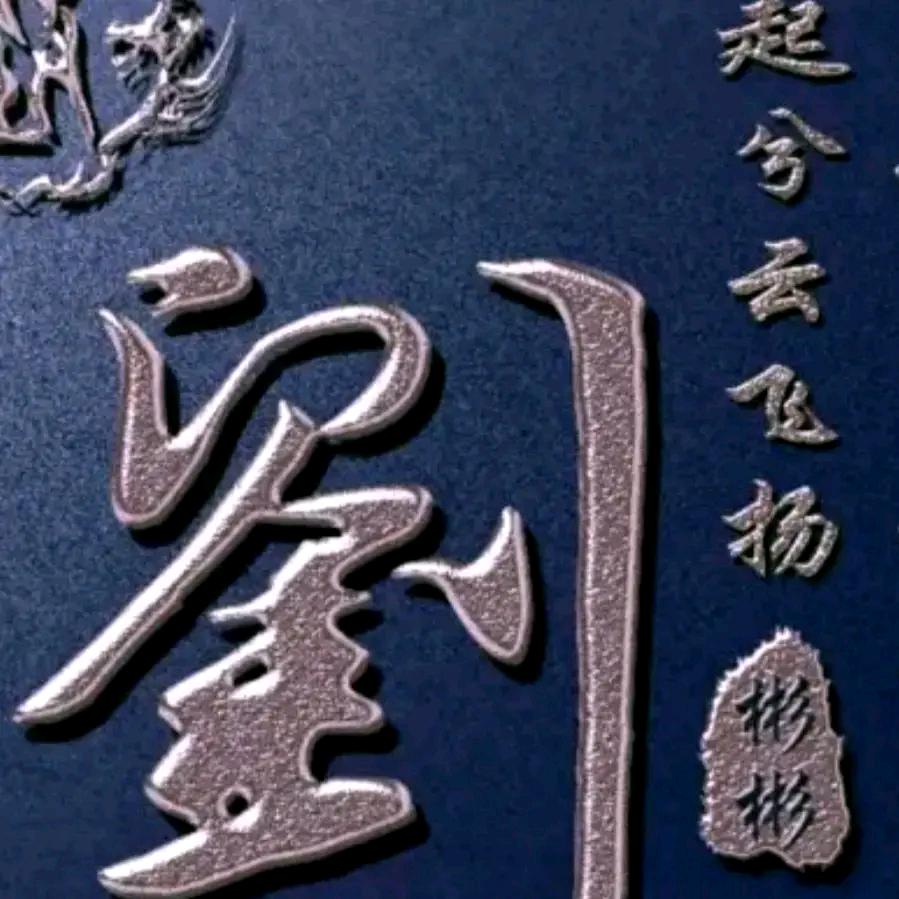 起兮云飞扬
劉
彬彬